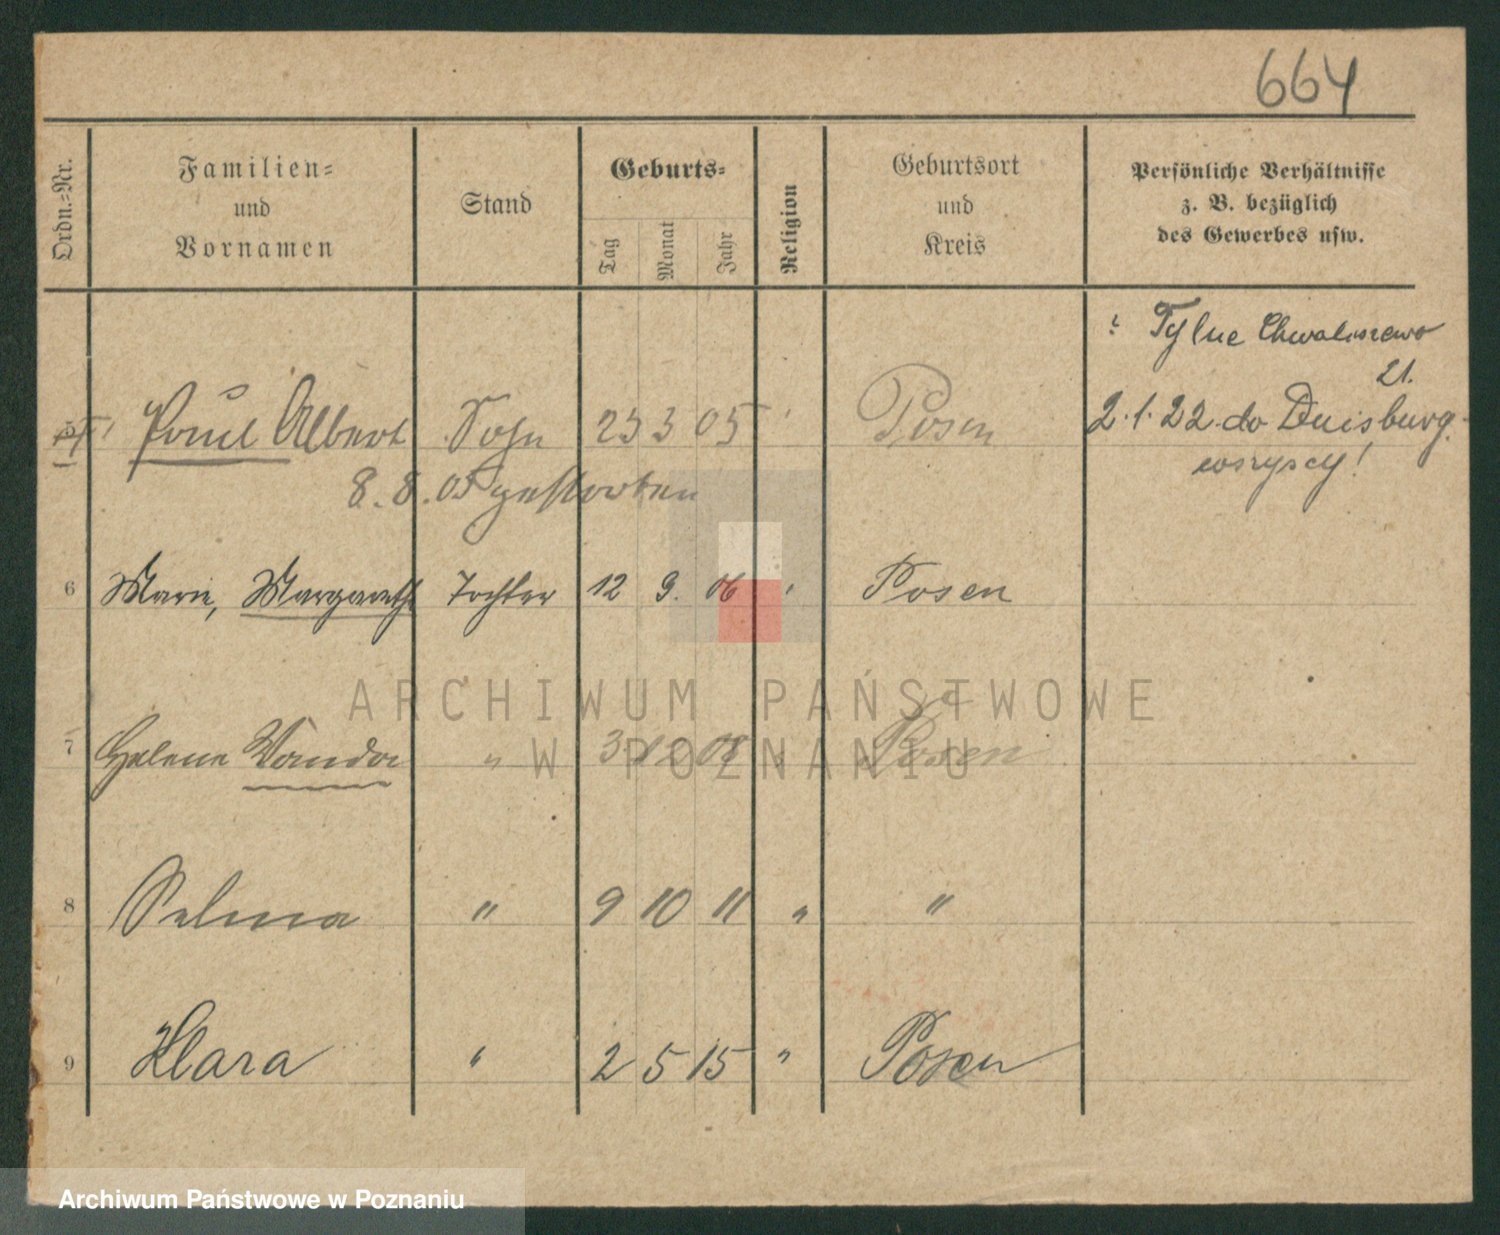 664
Ordn.=Nr.
Familien=
und
Vornamen
Stand
Geburts=
Tag
Monat
Jahr
Religion
Geburtsort
und
Kreis
Persönliche Verhältnisse
z. B. bezüglich
des Gewerbes usw.
Tylne Chwaliszewo
21.
5 Paul Albert Sohn 23 3 05 " Posen 2.1.22. do Duisburg.
wszyscy!
8.8.05 gestorben
6 Marie, Margarethe Tochter 12 9. 06 " Posen
7 Helene Wanda " 3 08 Posen
8 Selma " 9 10 11 " "
9 Klara " 2 5 15 " Posen
ARCHIWUM PAŃSTWOWE
W POZNANIU
Archiwum Państwowe w Poznaniu